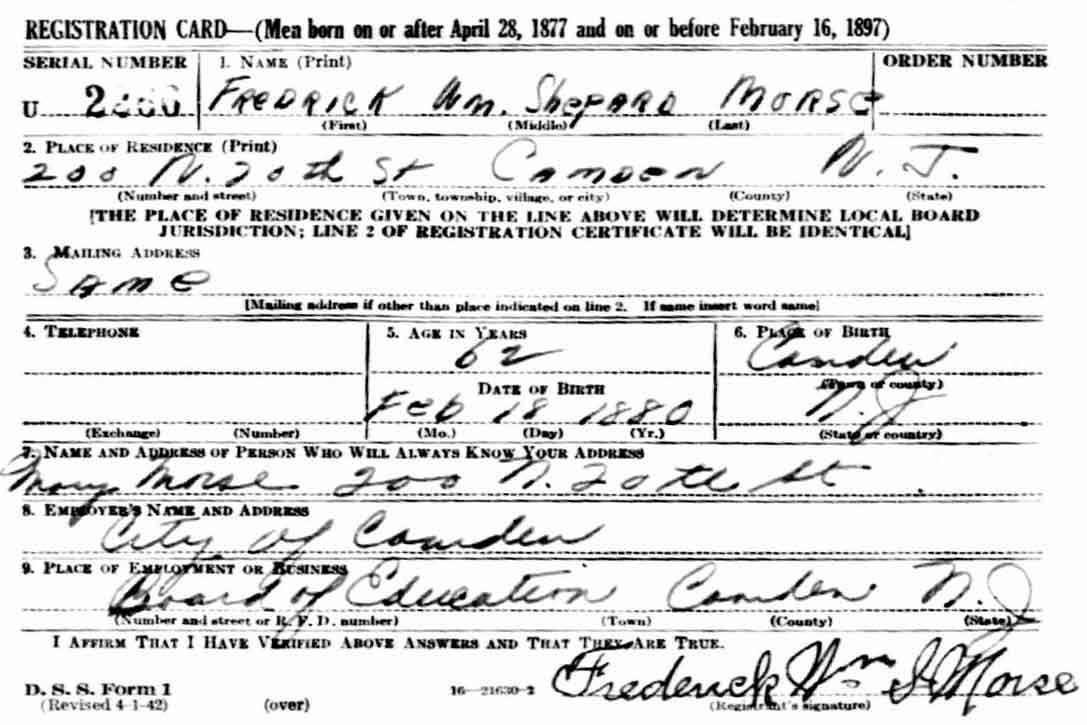 REGISTRATION CARD—(Men born on or after April 28, 1877 and on or before February 16, 1897)
SERIAL NUMBER 1. NAME (Print) ORDER NUMBER
U FREDRICK Wm. SHEPARD MORSE
(First) (Middle) (Last)
2. PLACE OF RESIDENCE (Print)
200 N. 20th St CAMDEN N. J.
(Number and street) (Town, township, village, or city) (County) (State)
[THE PLACE OF RESIDENCE GIVEN ON THE LINE ABOVE WILL DETERMINE LOCAL BOARD
JURISDICTION; LINE 2 OF REGISTRATION CERTIFICATE WILL BE IDENTICAL]
3. MAILING ADDRESS
SAME
[Mailing address if other than place indicated on line 2. If same insert word same]
4. TELEPHONE 5. AGE IN YEARS 6. PLACE OF BIRTH
62 Camden
DATE OF BIRTH (Town or county)
Feb 18 1880 N.J
(Exchange) (Number) (Mo.) (Day) (Yr.) (State or country)
7. NAME AND ADDRESS OF PERSON WHO WILL ALWAYS KNOW YOUR ADDRESS
Mary Morse 200 N. 20th St
8. EMPLOYER'S NAME AND ADDRESS
City of Camden
9. PLACE OF EMPLOYMENT OR BUSINESS
Board of Education Camden N.J
(Number and street or R. F. D. number) (Town) (County) (State)
I AFFIRM THAT I HAVE VERIFIED ABOVE ANSWERS AND THAT THEY ARE TRUE.
Frederick Wm S Morse
D. S. S. Form 1 16—21630-2
(Revised 4-1-42) (over) (Registrant's signature)